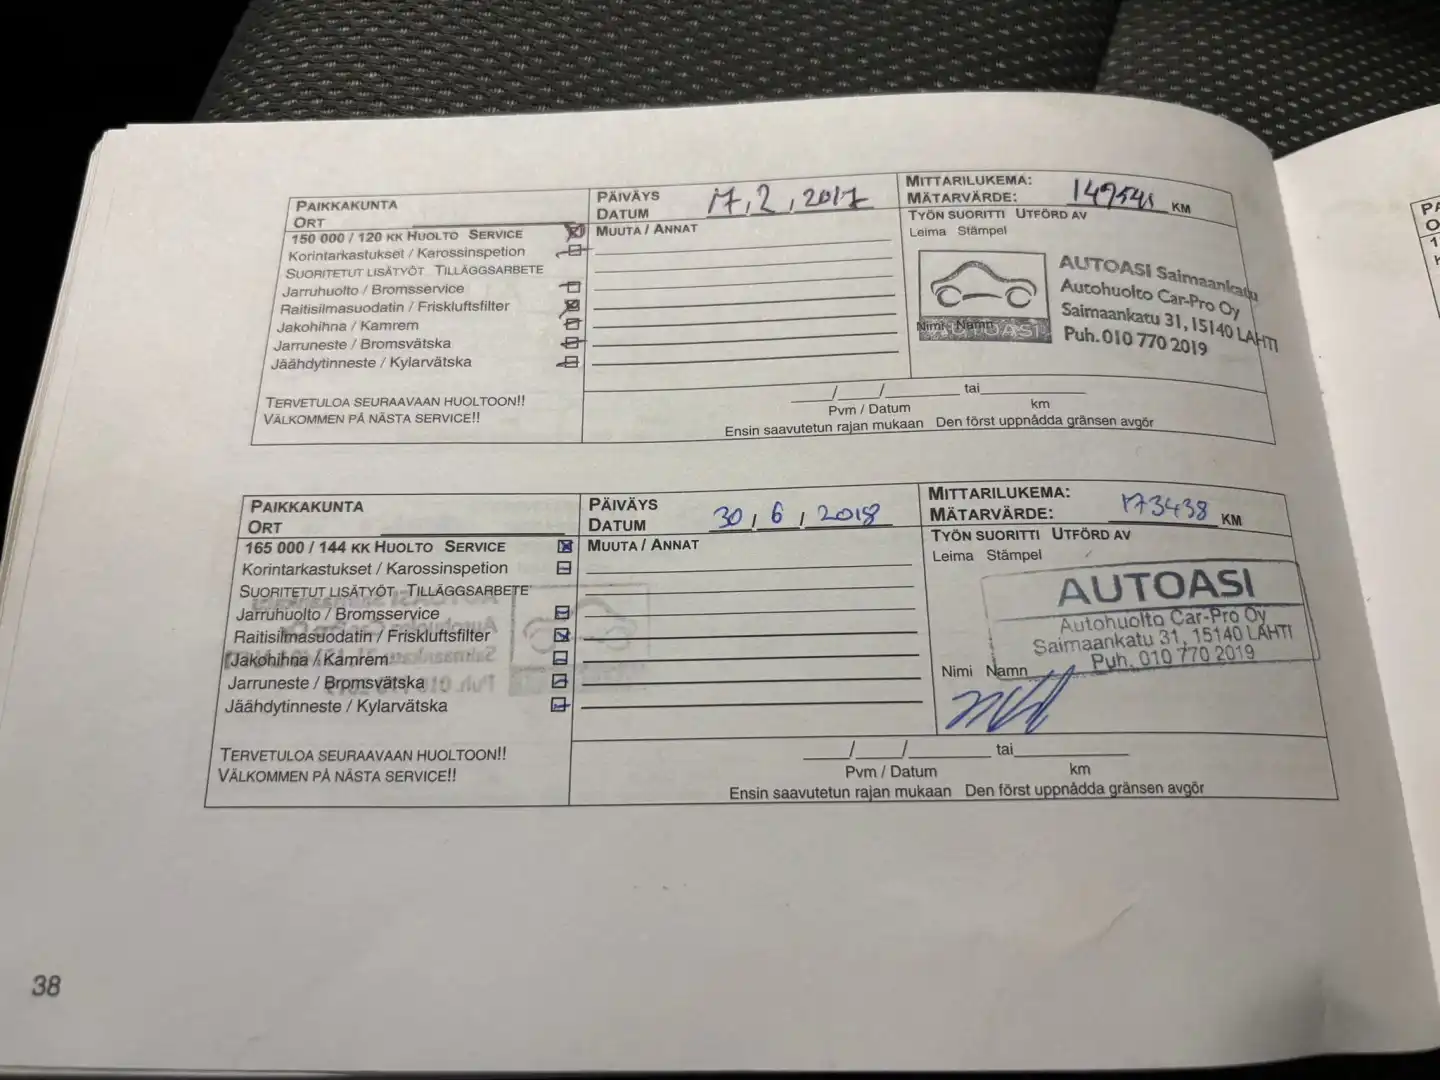 PAIKKAKUNTA
ORT
150 000 / 120 KK HUOLTO SERVICE
Korintarkastukset / Karossinspetion
SUORITETUT LISÄTYÖT TILLÄGGSARBETE
Jarruhuolto / Bromsservice
Raitisilmasuodatin / Friskluftsfilter
Jakohihna / Kamrem
Jarruneste / Bromsvätska
Jäähdytinneste / Kylarvätska
TERVETULOA SEURAAVAAN HUOLTOON!!
VÄLKOMMEN PÅ NÄSTA SERVICE!!
PÄIVÄYS
DATUM 17, 2, 2017
MUUTA / ANNAT
MITTARILUKEMA:
MÄTARVÄRDE: KM
TYÖN SUORITTI UTFÖRD AV
Leima Stämpel
AUTOASI Saimaankatu
Autohuolto Car-Pro Oy
Saimaankatu 31, 15140 LAHTI
Puh. 010 770 2019
Nimi Namn
AUTOASI
___/___/______ tai ________
Pvm / Datum km
Ensin saavutetun rajan mukaan Den först uppnådda gränsen avgör
PAIKKAKUNTA
ORT
165 000 / 144 KK HUOLTO SERVICE
Korintarkastukset / Karossinspetion
SUORITETUT LISÄTYÖT TILLÄGGSARBETE
Jarruhuolto / Bromsservice
Raitisilmasuodatin / Friskluftsfilter
Jakohihna / Kamrem
Jarruneste / Bromsvätska
Jäähdytinneste / Kylarvätska
TERVETULOA SEURAAVAAN HUOLTOON!!
VÄLKOMMEN PÅ NÄSTA SERVICE!!
PÄIVÄYS
DATUM 30, 6, 2018
MUUTA / ANNAT
MITTARILUKEMA:
MÄTARVÄRDE: 173438 KM
TYÖN SUORITTI UTFÖRD AV
Leima Stämpel
AUTOASI
Autohuolto Car-Pro Oy
Saimaankatu 31, 15140 LAHTI
Puh. 010 770 2019
Nimi Namn
___/___/______ tai ________
Pvm / Datum km
Ensin saavutetun rajan mukaan Den först uppnådda gränsen avgör
38